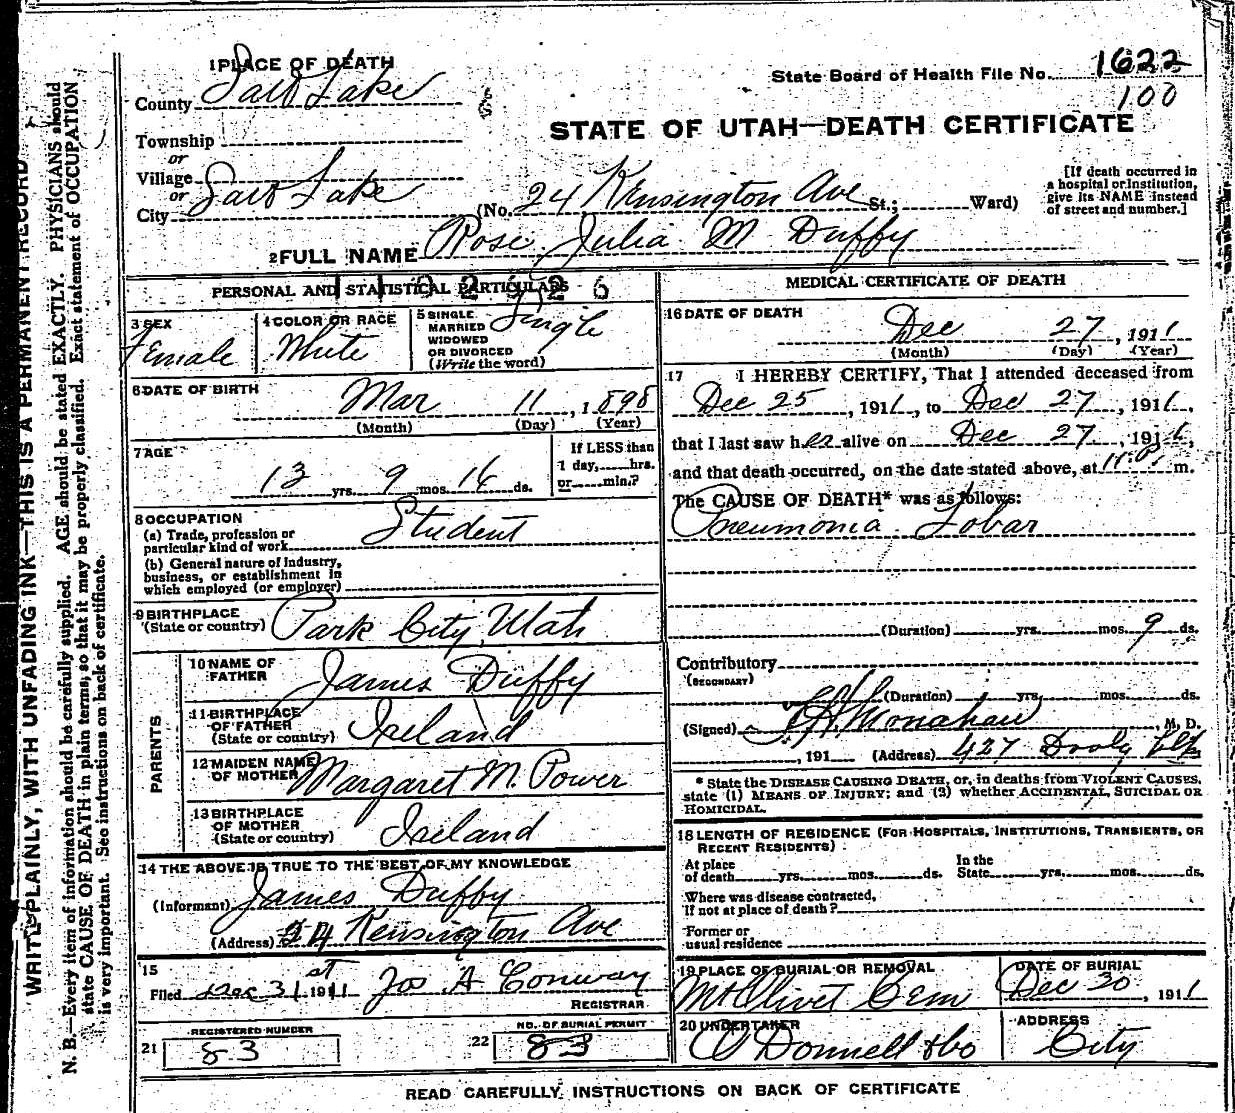 1 PLACE OF DEATH
County Salt Lake
Township
or
Village
or
City Salt Lake
State Board of Health File No. 1622
100
STATE OF UTAH—DEATH CERTIFICATE
(No. 24 Kensington Ave St.; Ward)
[If death occurred in
a hospital or institution,
give its NAME instead
of street and number.]
2 FULL NAME Rose Julia M Duffy
PERSONAL AND STATISTICAL PARTICULARS
3 SEX
Female
4 COLOR OR RACE
White
5 SINGLE
MARRIED
WIDOWED
OR DIVORCED
(Write the word)
Single
6 DATE OF BIRTH
Mar 11, 1898
(Month) (Day) (Year)
7 AGE
13 yrs. 9 mos. 16 ds.
If LESS than
1 day, hrs.
or min.?
8 OCCUPATION
(a) Trade, profession or
particular kind of work
Student
(b) General nature of industry,
business, or establishment in
which employed (or employer)
9 BIRTHPLACE
(State or country) Park City, Utah
PARENTS
10 NAME OF
FATHER James Duffy
11 BIRTHPLACE
OF FATHER
(State or country) Ireland
12 MAIDEN NAME
OF MOTHER Margaret M. Power
13 BIRTHPLACE
OF MOTHER
(State or country) Ireland
14 THE ABOVE IS TRUE TO THE BEST OF MY KNOWLEDGE
(Informant) James Duffy
(Address) 24 Kensington Ave
15
Filed Dec 31st 1911 Jos A Conway
REGISTRAR
REGISTERED NUMBER
21 83
NO. OF BURIAL PERMIT
22 83
MEDICAL CERTIFICATE OF DEATH
16 DATE OF DEATH
Dec 27, 1911
(Month) (Day) (Year)
17 I HEREBY CERTIFY, That I attended deceased from
Dec 25, 1911, to Dec 27, 1911,
that I last saw her alive on Dec 27, 1911,
and that death occurred, on the date stated above, at m.
The CAUSE OF DEATH* was as follows:
Pneumonia. Lobar
(Duration) yrs. mos. 9 ds.
Contributory
(SECONDARY)
(Duration) yrs. mos. ds.
(Signed) Monahan, M. D.
, 191 (Address) 427 Dooly Blk
* State the DISEASE CAUSING DEATH, or, in deaths from VIOLENT CAUSES,
state (1) MEANS OF INJURY; and (2) whether ACCIDENTAL, SUICIDAL OR
HOMICIDAL.
18 LENGTH OF RESIDENCE (FOR HOSPITALS, INSTITUTIONS, TRANSIENTS, OR
RECENT RESIDENTS)
At place
of death yrs. mos. ds.
In the
State yrs. mos. ds.
Where was disease contracted,
if not at place of death?
Former or
usual residence
19 PLACE OF BURIAL OR REMOVAL
Mt Olivet Cem
DATE OF BURIAL
Dec 30, 1911
20 UNDERTAKER
O Donnell & Co
ADDRESS
City
READ CAREFULLY INSTRUCTIONS ON BACK OF CERTIFICATE
WRITE PLAINLY, WITH UNFADING INK—THIS IS A PERMANENT RECORD
N. B.—Every item of information should be carefully supplied. AGE should be stated EXACTLY. PHYSICIANS should
state CAUSE OF DEATH in plain terms, so that it may be properly classified. Exact statement of OCCUPATION
is very important. See instructions on back of certificate.